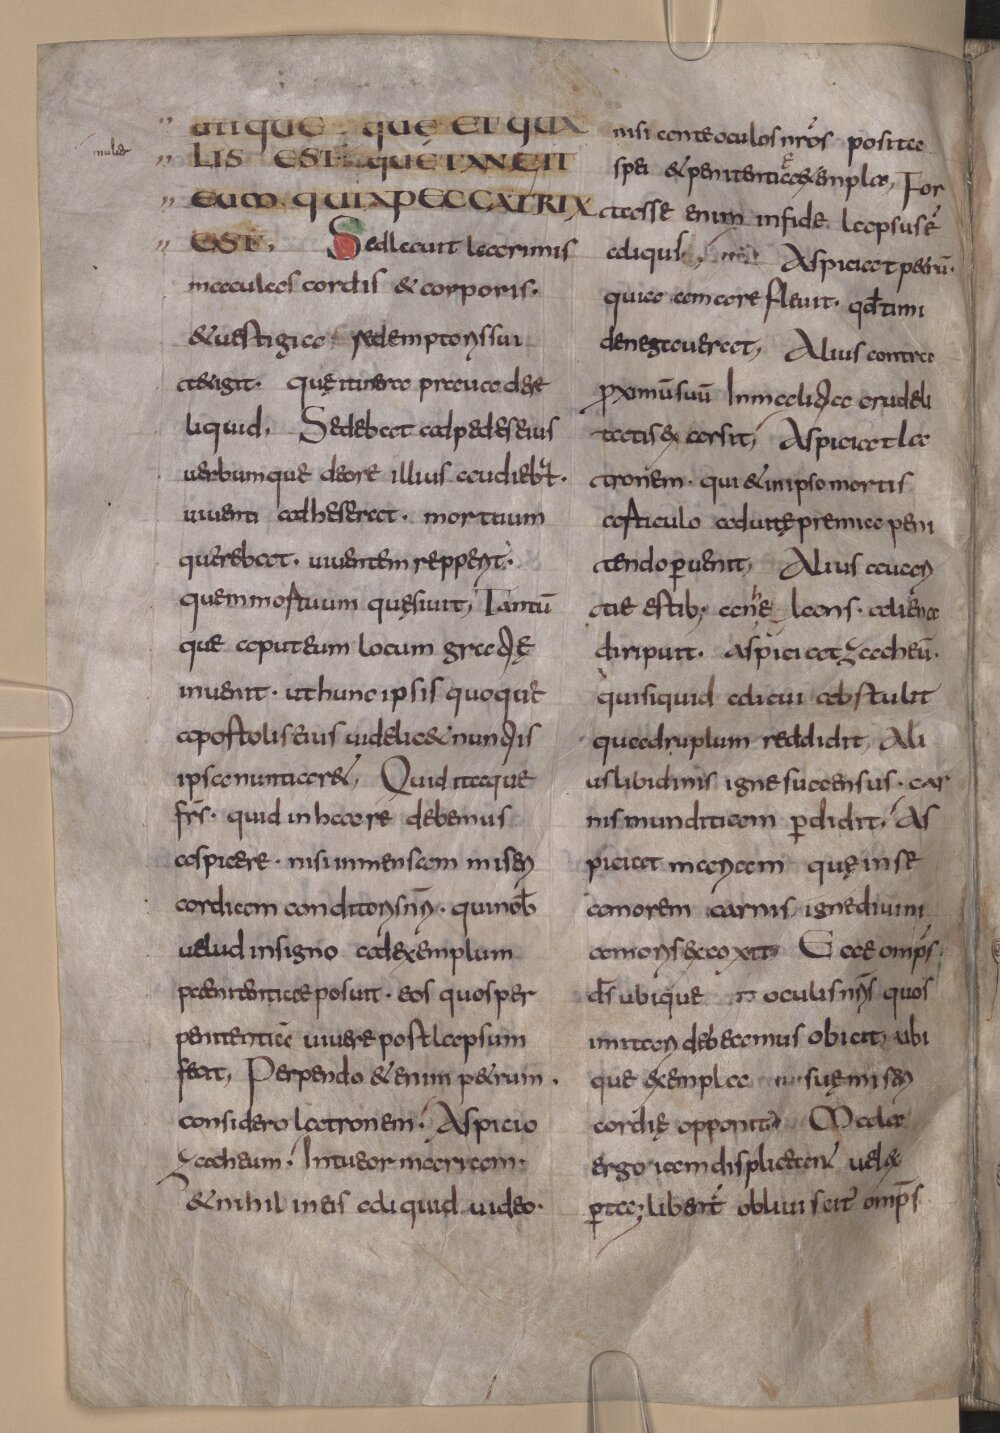 utique que et qua
mulier
lis est quę tangit
eum quia peccatrix
est, Sed lavit lacrimis
maculas cordis & corporis·
& vestigia redemptoris sui
tetigit· quę itinera prava de re
liquid, Sedebat ad pedes eius
verbumque de ore illius audieb̄t·
viventi adheserat· mortuum
querebat· viventem repperit·
quem mortuum quęsivit, Tantū
que aput eum locum gratię
invenit· ut hunc ipsis quoque
apostolis eius videlic& nuntiis
ipsa nuntiar&, Quid itaque
fr̄s· quid in hac re debemus
aspicere· nisi inmensam miseri
cordiam conditoris n̄ri· qui nob̄
velud in signo ad exemplum
paenitentiae posuit· eos quos per
penitentiā vivere post lapsum
fecit, Perpendo & enim p&rum·
considero latronem· Aspicio
zacheum· Intueor mariam·
& nihil in eis aliquid video·
nisi ante oculos nr̄os posita
spei & penitentiae exempla, For
tasse enim in fide lapsus ē
aliquis, Aspiciat p&rū·
qui a amare flevit· qd̄ timi
de negaverat, Alius contra
ꝓximū suū In malitia crudeli
tatis exarsit, Aspiciat la
tronem· qui & in ipso mortis
articulo ad vitę premia peni
tendo ꝑvenit, Alius avari
tiae estib; anhelans· aliena
diripuit· aspiciat zacheū·
qui siquid alicui abstulit
quadruplum reddidit, Ali
us libidinis igne succensus· car
nis munditiam ꝑdidit, As
piciat mariam quę in se
amorem carnis igne divini
amoris excoxit, Ecce omp̄s
d̄s ubique oculis nr̄is quos
imitari debeamus obicit, ubi
que exempla suę miseri
cordię opponit, Mala
ergo iam displiceant vel ex
ꝑta; libent̄ obliviscit̄ omp̄s